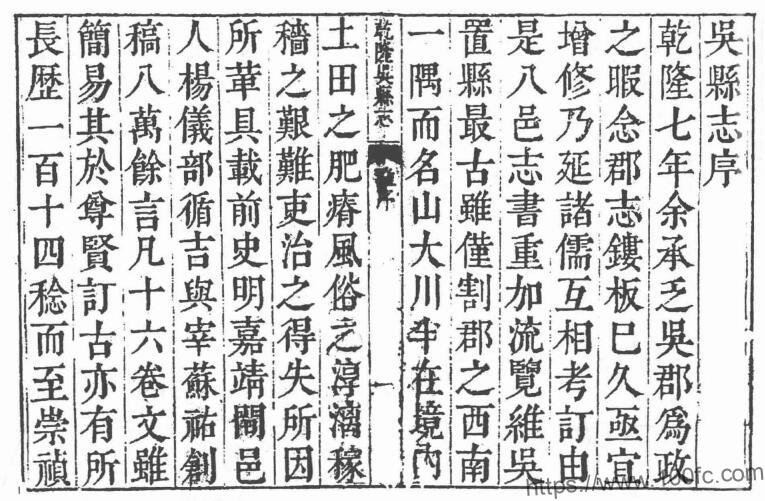 吳縣志序
乾隆七年余承乏吳郡爲政
之暇念郡志鏤板巳久亟宜
增修乃延諸儒互相考訂由
是八邑志書重加流覽維吳
置縣最古雖僅割郡之西南
一隅而名山大川半在境內
乾隆吳縣志 序 一
土田之肥瘠風俗之淳漓稼
穡之艱難吏治之得失所因
所革具載前史明嘉靖間邑
人楊儀部循吉與宰蘇祐創
稿八萬餘言凡十六卷文雖
簡易其於尊賢訂古亦有所
長歷一百十四稔而至崇禎
https://www.100fc.com